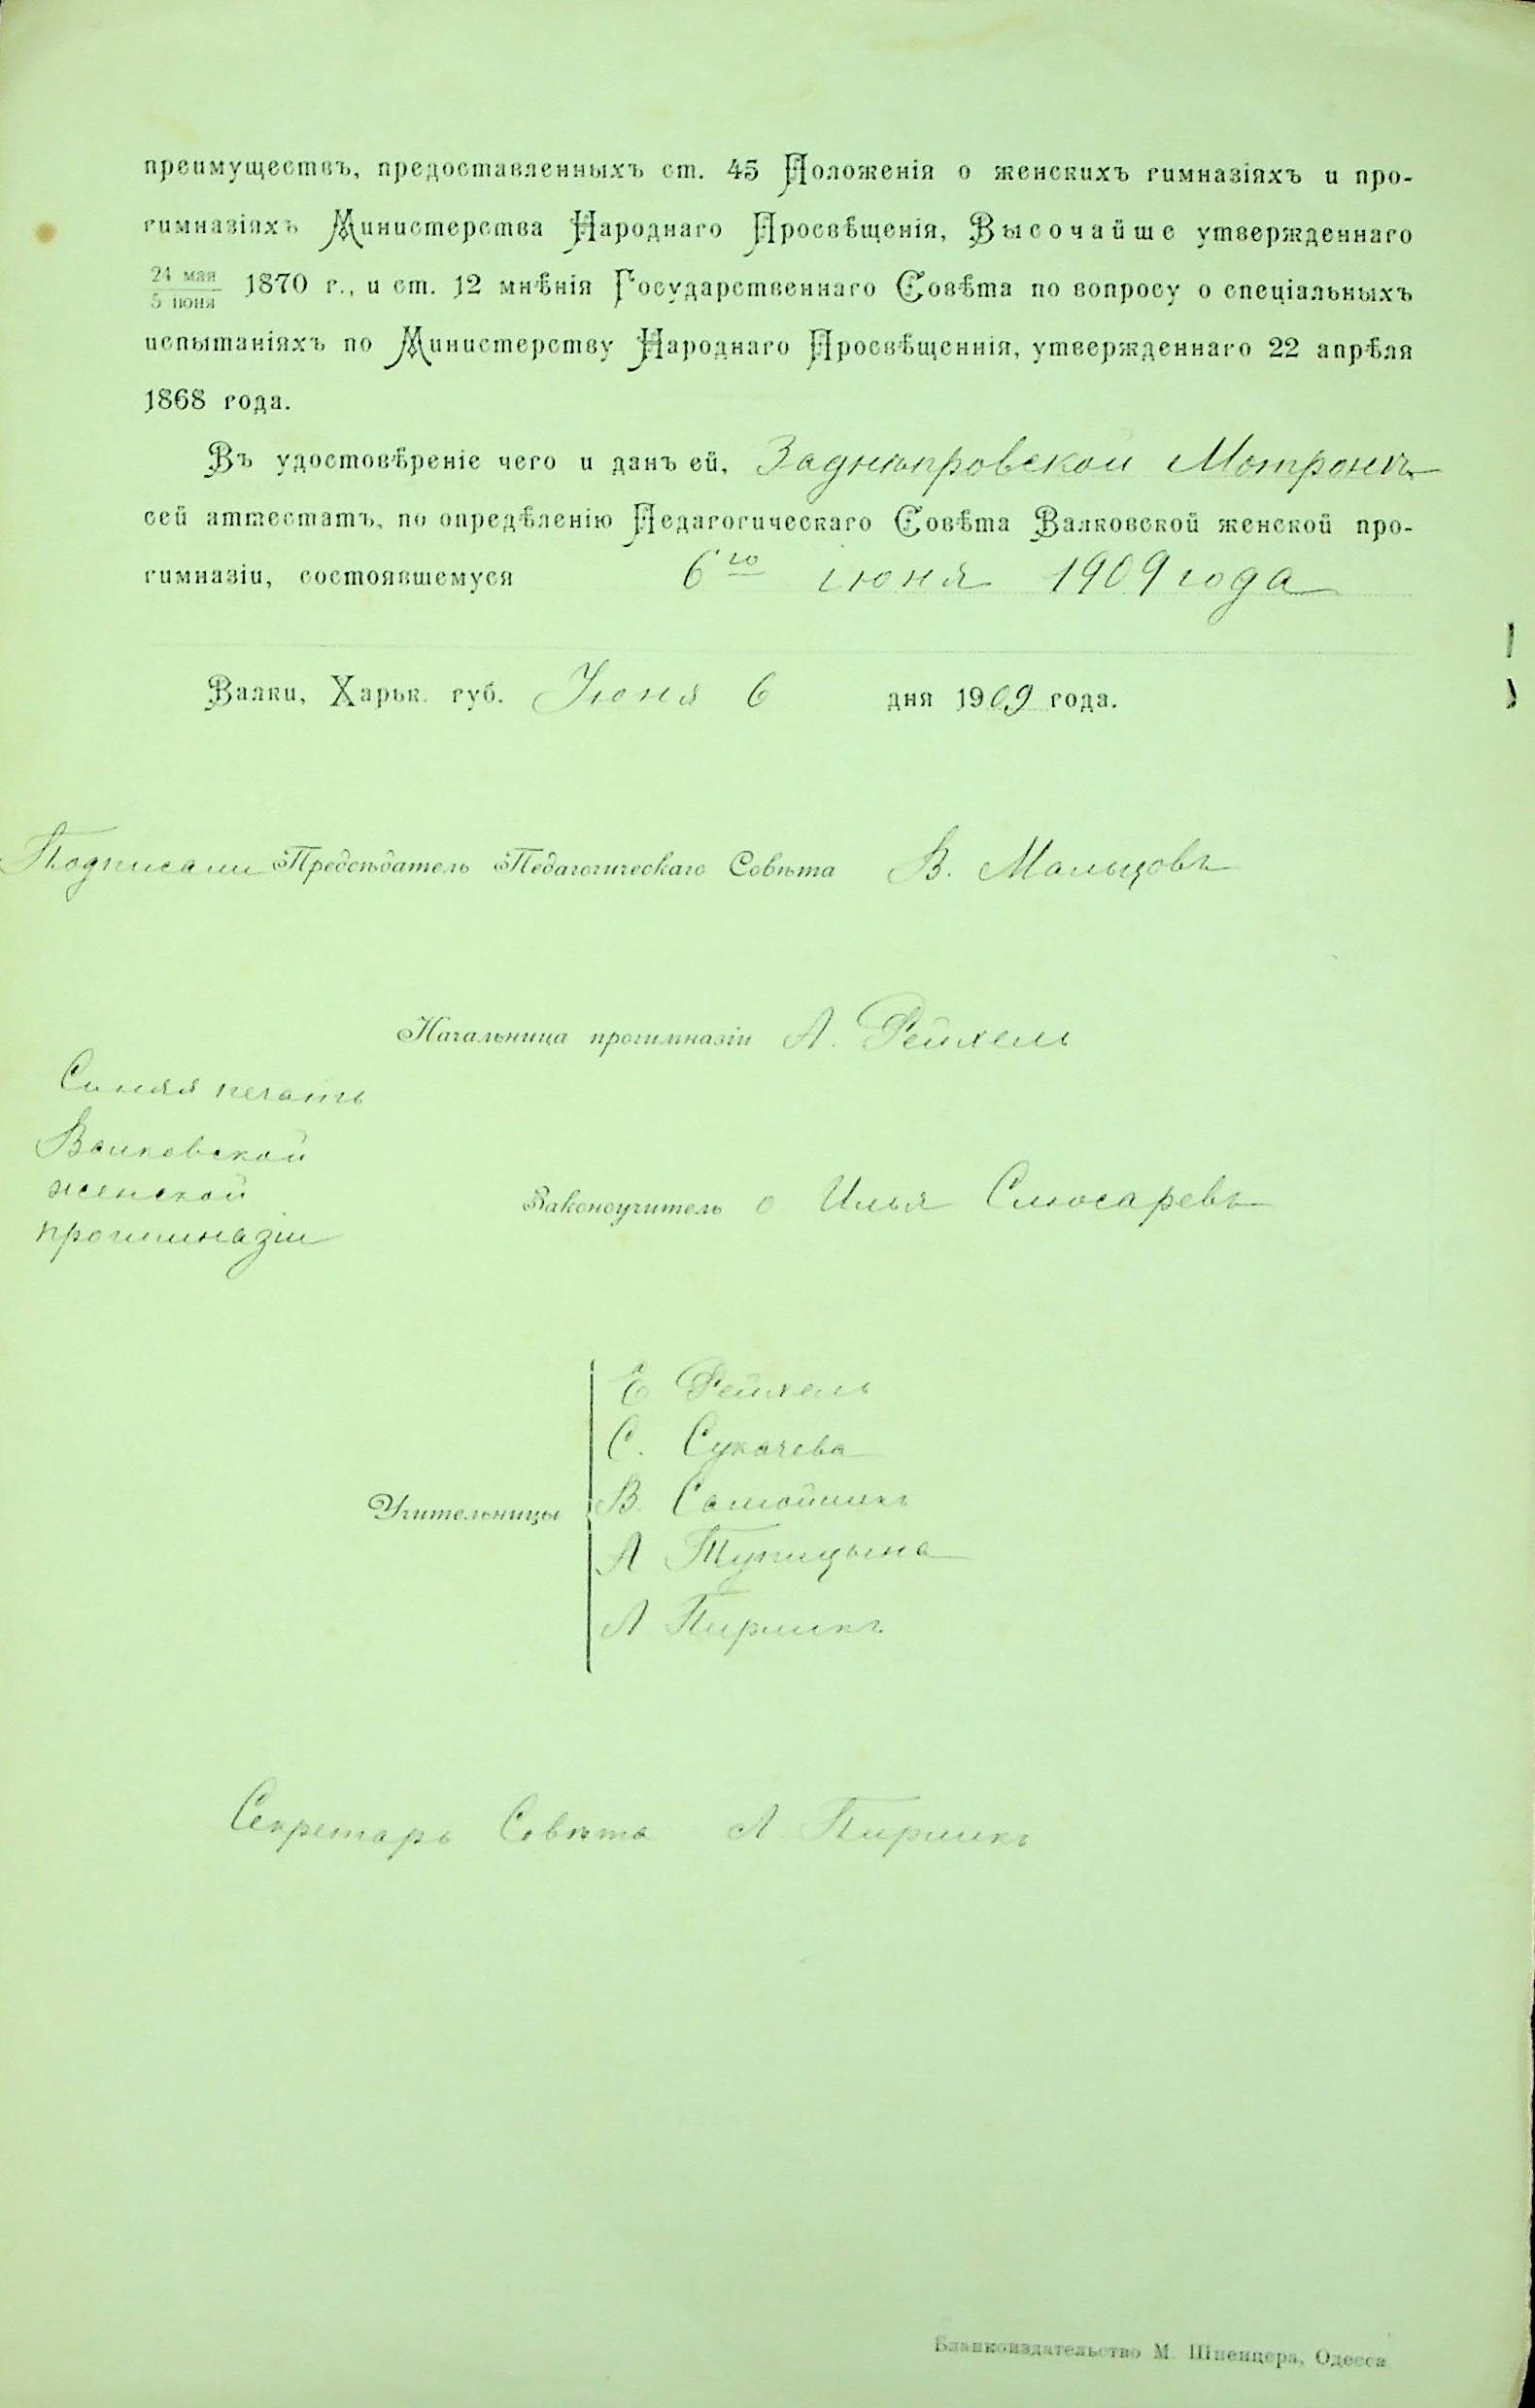 преимуществъ, предоставленныхъ ст. 45 Положенія о женскихъ гимназіяхъ и про-
гимназіяхъ Министерства Народнаго Просвѣщенія, Высочайше утвержденнаго
24 мая
5 июня 1870 г., и ст. 12 мнѣнія Государственнаго Совѣта по вопросу о спеціальныхъ
испытаніяхъ по Министерству Народнаго Просвѣщеннія, утвержденнаго 22 апрѣля
1868 года.
Въ удостовѣреніе чего и данъ ей, Заднѣпровской Мотронѣ
сей аттестатъ, по опредѣленію Педагогическаго Совѣта Валковской женской про-
гимназіи, состоявшемуся 6го іюня 1909 года
Валки, Харьк. губ. Июня 6 дня 1909 года.
Подписали Предсѣдатель Педагогическаго Совѣта В. Мальцовъ
Начальница прогимназіи А. Рейхель
Синяя печать
Валковской
женской
прогимназіи
Законоучитель о Илья Слюсаревъ
Е Рейхель
С. Сукачева
Учительницы
В. Самойликъ
А Тупицына
А Пирликъ
Секретарь Совѣта А Пирликъ
Бланкоиздательство М. Шпенцера, Одесса